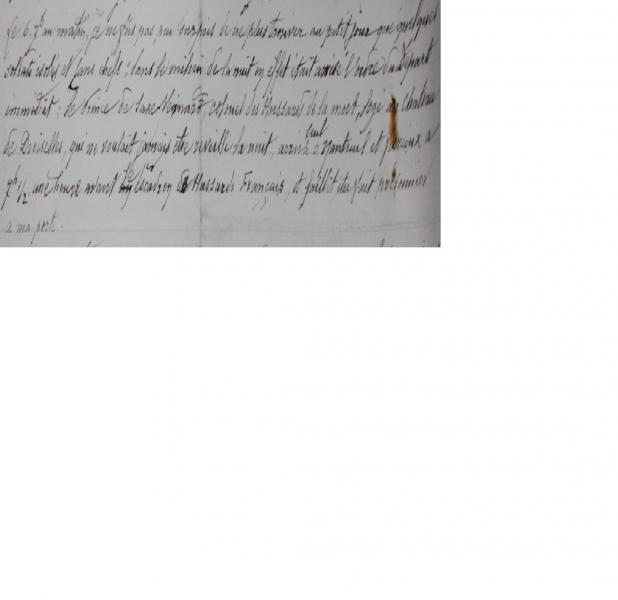 Le 6. 7bre au matin, je ne fus pas peu surpris de ne plus trouver au petit jour que quelques
soldats isolés et sans chefs : dans le milieu de la nuit en effet était arrivé l'ordre du départ
immédiat : le Prince de Saxe colonel des Hussards de la mort, logé au Château
de Droiselles, qui ne voulait jamais être réveillé la nuit, seul à Nanteuil et
7h 1/2, une heure avant les escadrons de Hussards Français, et faillit être fait prisonnier
a ma porte.